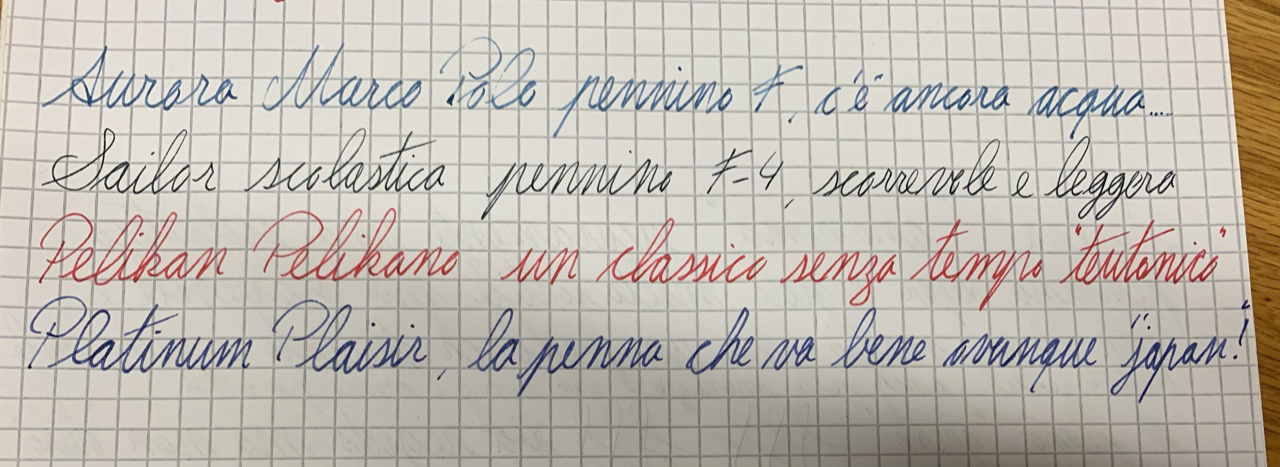 Aurora Marco Polo pennino F, c'è ancora acqua....
Sailor scolastica pennino F-4, scorrevole e leggera
Pelikan Pelikano un classico senza tempo "teutonico"
Platinum Plaisir, la penna che va bene ovunque "japan!"